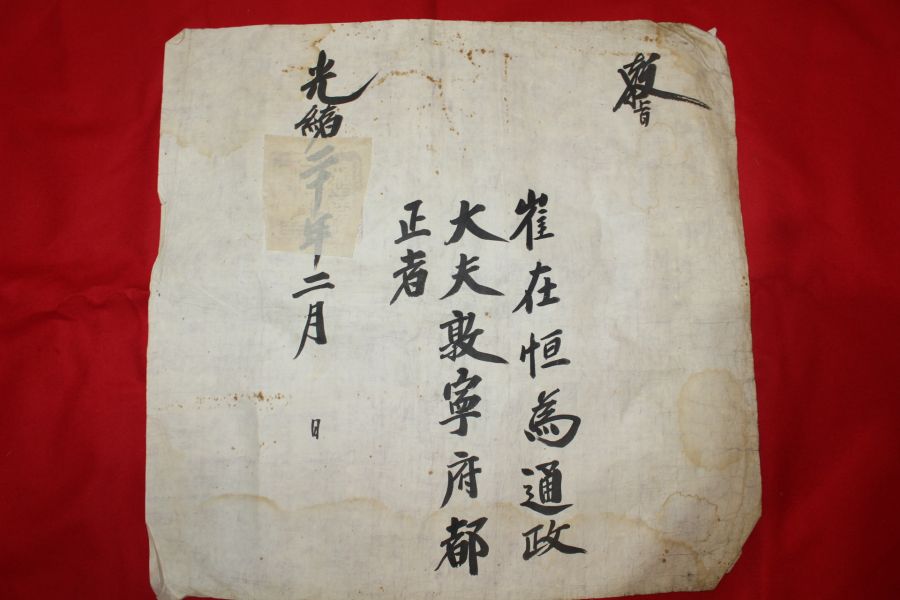 敎旨
崔在恒為通政
大夫敦寧府都
正者
光緒二十年二月 日